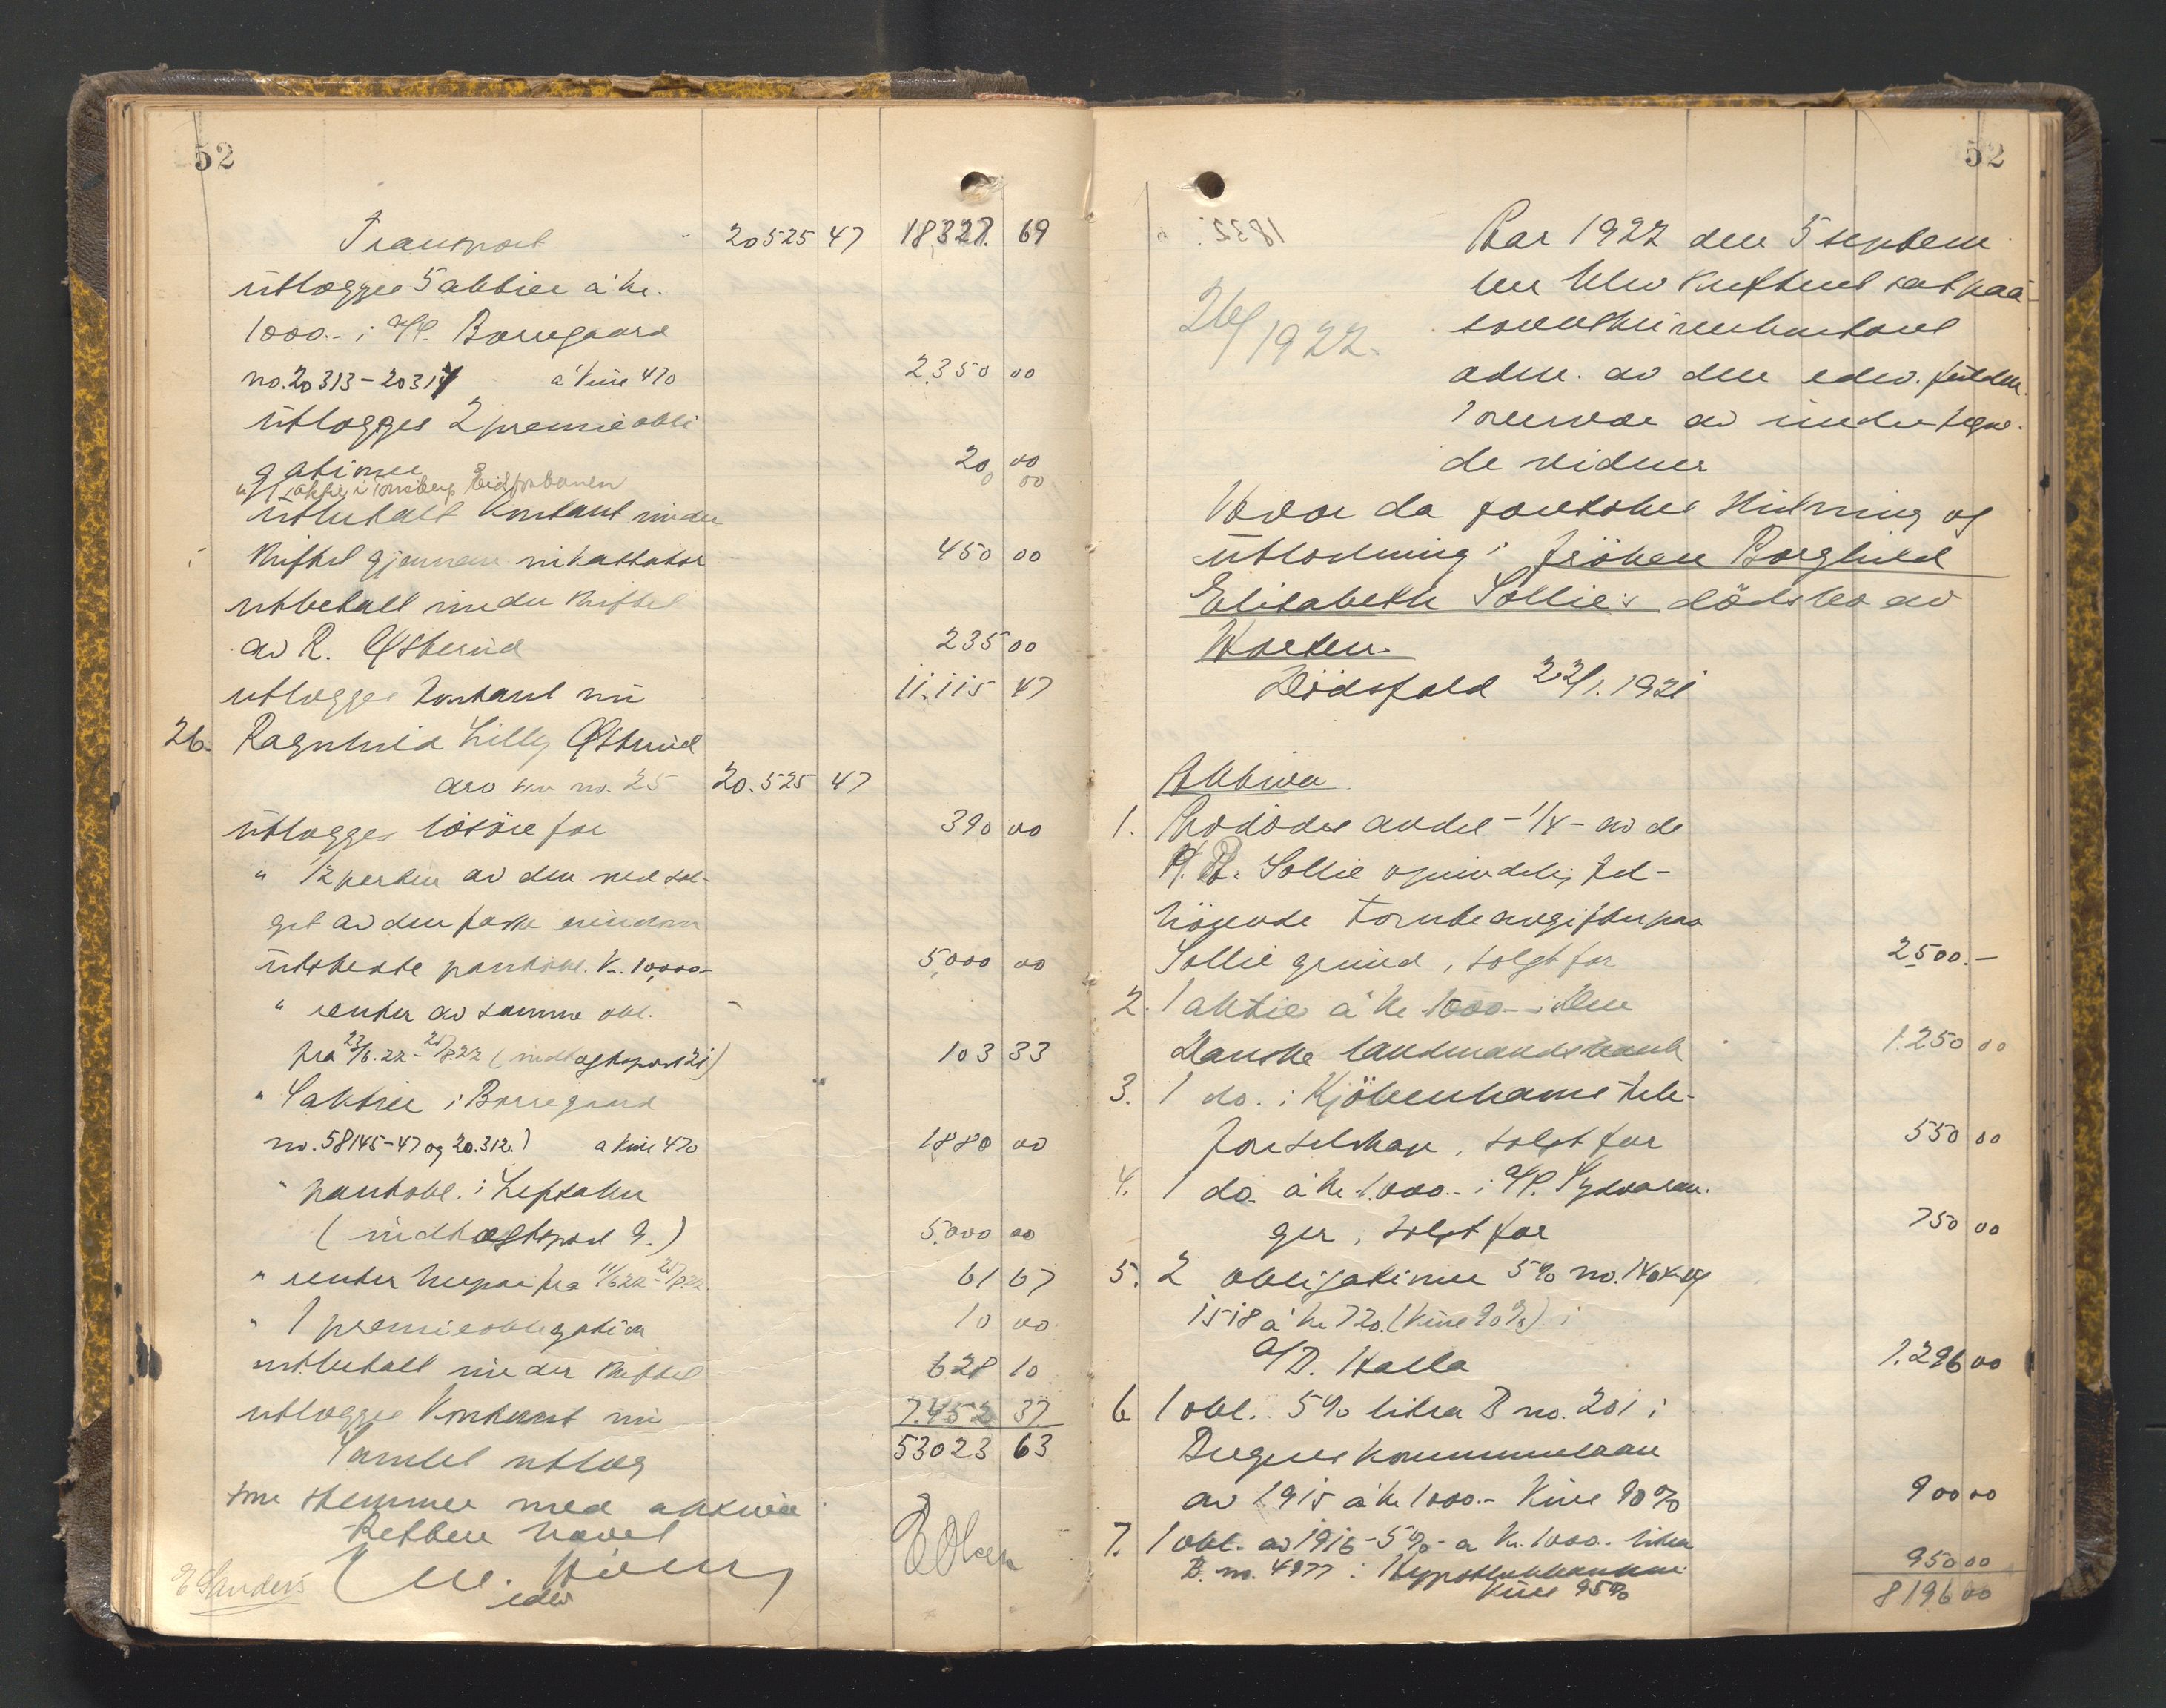 52
Transport 20525 47 18327. 69
utlægges 5 aktier à kr.
1000.- i A/S. Borregaard
no. 20313-20317 à kurs 470 2350 00
utlægges 2 premieobli
gationer 20 00
" 1 aktie i Tønsberg Eidsfosbanen 0 00
utbetalt kontant under
skiftet gjennem 450 00
utbetalt under skiftet
av R. Østerud 235 00
utlægges kontant nu 11.115 47
26. Ragnhild Lilly Østerud
arv som no. 25 20.525 47
utlægges løsöre for 390 00
" 1/2 parten av den ved sal-
get av den faste eiendom
utstedte pantobl. Kr. 10,000- 5000 00
" renter av samme obl.
fra 23/6.22 - 25/8.22 (indtægtspost 21) 103 33
" 4 aktier i Borregaard
no. 58145-47 og 20.312.) à kurs 470 1880 00
" pantobl. i Lefsaker
(indtægtspost 9.) 5.000 00
" renter herpaa fra 11/6 22 - 25/8.22. 61 67
" 1 premieobligation 10 00
utbetalt under skiftet 628 10
utlægges kontant nu 7.452 37
Samlet utlæg 53023 63
som stemmer med aktiva
Retten hævet
edv
E Sanders
EOlsen
52
26/
1922.
Aar 1922 den 5 septem
ber blev skifteret sat paa
sorenskriverkontoret
adm. av den edsv. fuldm.
i overvær av undertegne-
de vidner
Hvor da foretokes slutning og
utlodning i fröken Borghild
Elisabeth Sollie's dödsbo av
Horten.
Dödsfald 22/1. 1921
Aktiva
1. Avdödes andel - 1/4 - av de
Sollie oprindelig til-
hörende tomteavgifter paa
Sollie grund, solgt for 2500.-
2. 1 aktie à kr 1000.- i Den
Danske landmandsbank 1.250 00
3. 1 do. i Kjöbenhavns tele-
fonselskap, solgt for 550 00
4. 1 do. à kr 1.000.- i A/S. Sydvaran-
ger, solgt for 750 00
5. 2 obligationer 5% no. 1404 og
1518 à kr 720. (kurs 90%) i
A/B. Halla 1.296 00
6 1 obl. 5% litra B no. 201 i
Bergens kommunelaan
av 1915 à kr 1000.- Kurs 90% 900 00
7. 1 obl. av 1916 - 5% - à kr. 1000.- litra
B. no. 4977 i Hypotekbanken
Kurs 95% 950 00
8196 00